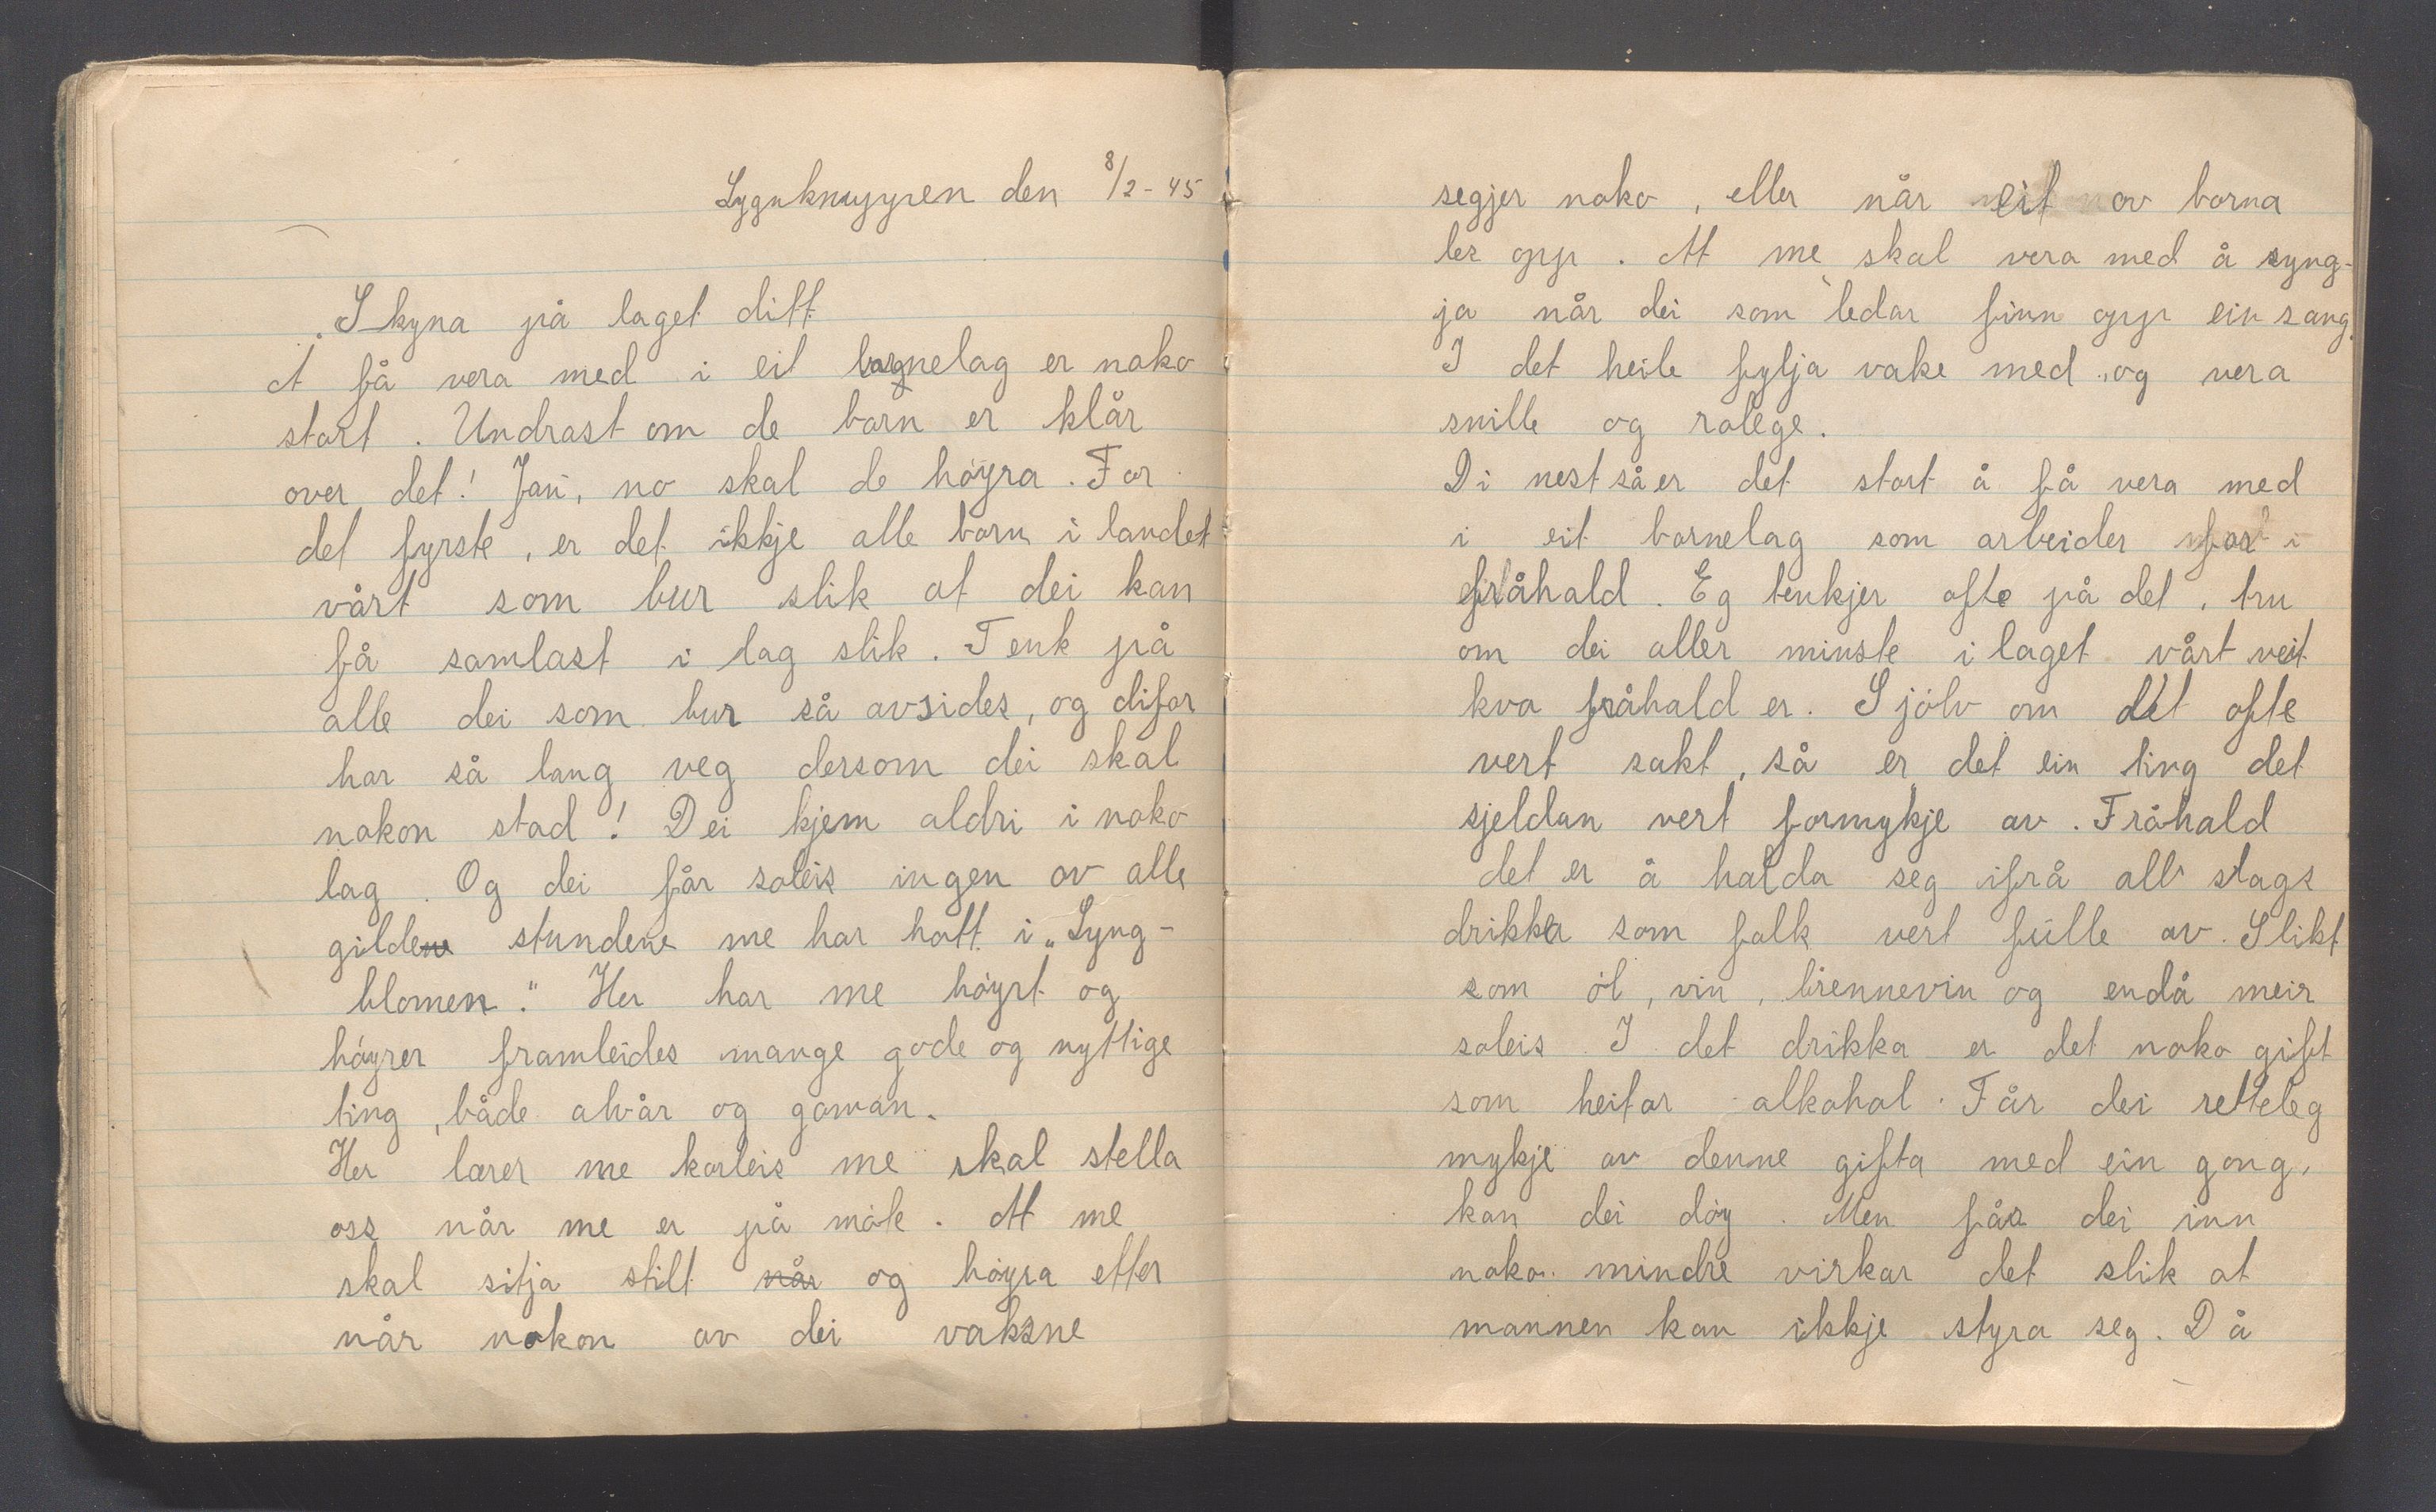 Lygnknuppen den 8/2-45
Skyna på laget ditt
At få vera med i eit barnelag er noko
stort. Undrast om de born er klår
over det! Jau, no skal de høyra. For
det fyrste, er det ikkje alle born i landet
vårt som bur slik at dei kan
få samlast i lag slik. Tenk på
alle dei som bur så avsides, og difor
har så lang veg dersom dei skal
nokon stad! Dei kjem aldri i noko
lag. Og dei får soleis ingen av alle
gildene stundene me har hatt i „Lyng-
blomen." Her har me høyrt og
høyrer framleides mange gode og nyttige
ting, både alvår og gaman.
Her lærer me korleis me skal stella
oss når me er på møte. At me
skal sitja stilt når og høyra etter
når nokon av dei vaksne
segjer noko, eller når eit av borna
les opp. At me skal vera med å syng-
ja når dei som ledar finn opp ein sang.
I det heile fylja vake med, og vera
snille og rolege.
Di nest så er det stort å få vera med
i eit barnelag som arbeider for
fråhald. Eg tenkjer ofte på det, tru
om dei aller minste i laget vårt veit
kva fråhald er. Sjølv om det ofte
vert sakt, så er det ein ting det
sjeldan vert formykje av. Fråhald
det er å halda seg ifrå all slags
drikka som folk vert fulle av. Slikt
som øl, vin, brennevin og endå meir
soleis. I det drikka er det noko gift
som heitar alkohol. Får dei retteleg
mykje av denne gifta med ein gong,
kan dei døy. Men får dei inn
noko mindre virkar det slik at
mannen kan ikkje styra seg. Då